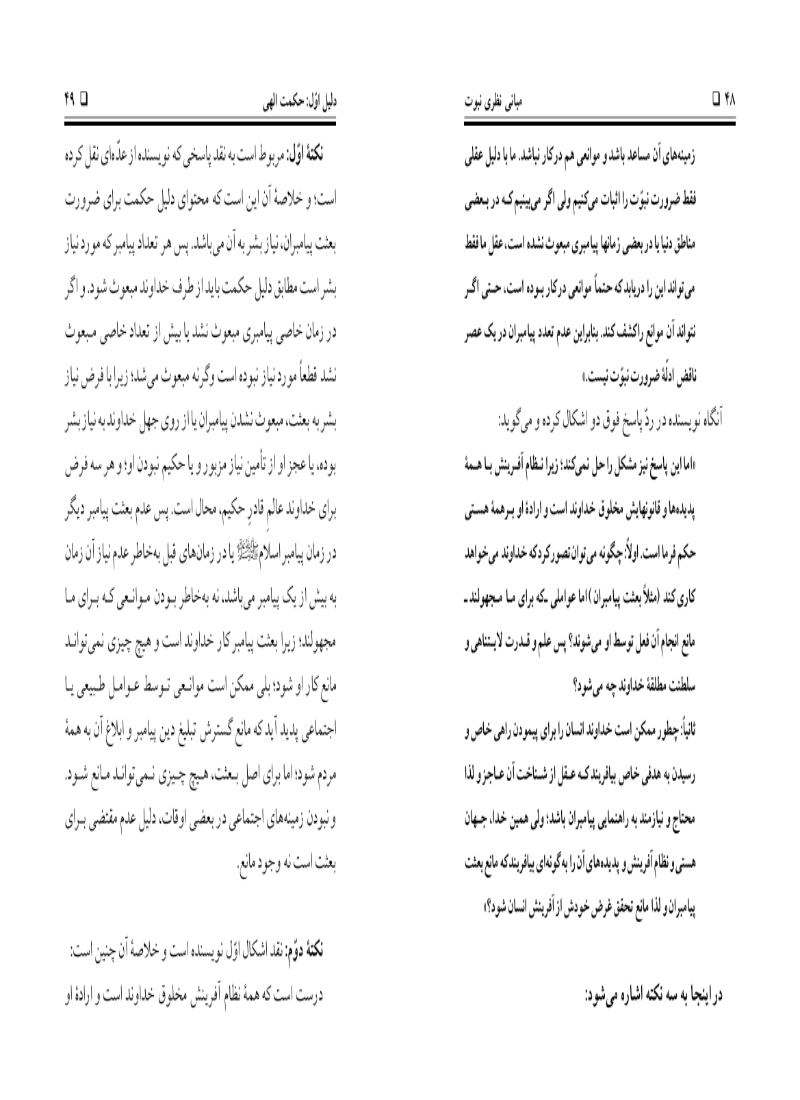 ۴۸ □ مبانی نظری نبوت
زمینه‌های آن مساعد باشد و موانعی هم در کار نباشد. ما با دلیل عقلی
فقط ضرورت نبوّت را اثبات می‌کنیم ولی اگر می‌بینیم که در بعضی
مناطق دنیا یا در بعضی زمانها پیامبری مبعوث نشده است، عقل ما فقط
می‌تواند این را دریابد که حتماً موانعی در کار بوده است، حتی اگر
نتواند آن موانع را کشف کند. بنابراین عدم تعدد پیامبران در یک عصر
ناقض ادلّهٔ ضرورت نبوّت نیست.»
آنگاه نویسنده در ردّ پاسخ فوق دو اشکال کرده و می‌گوید:
«اما این پاسخ نیز مشکل را حل نمی‌کند؛ زیرا نظام آفرینش با همهٔ
پدیده‌ها و قانونهایش مخلوق خداوند است و ارادهٔ او بر همهٔ هستی
حکم فرما است. اولاً: چگونه می‌توان تصور کرد که خداوند می‌خواهد
کاری کند (مثلاً بعثت پیامبران) اما عواملی ـ که برای ما مجهولند ـ
مانع انجام آن فعل توسط او می‌شوند؟ پس علم و قدرت لایتناهی و
سلطنت مطلقهٔ خداوند چه می‌شود؟
ثانیاً: چطور ممکن است خداوند انسان را برای پیمودن راهی خاص و
رسیدن به هدفی خاص بیافریند که عقل از شناخت آن عاجز و لذا
محتاج و نیازمند به راهنمایی پیامبران باشد؛ ولی همین خدا، جهان
هستی و نظام آفرینش و پدیده‌های آن را به گونه‌ای بیافریند که مانع بعثت
پیامبران و لذا مانع تحقق غرض خودش از آفرینش انسان شود؟»
در اینجا به سه نکته اشاره می‌شود:
دلیل اوّل: حکمت الهی □ ۴۹
نکتهٔ اوّل: مربوط است به نقد پاسخی که نویسنده از عدّه‌ای نقل کرده
است؛ و خلاصهٔ آن این است که محتوای دلیل حکمت برای ضرورت
بعثت پیامبران، نیاز بشر به آن می‌باشد. پس هر تعداد پیامبر که مورد نیاز
بشر است مطابق دلیل حکمت باید از طرف خداوند مبعوث شود. و اگر
در زمان خاصی پیامبری مبعوث نشد یا بیش از تعداد خاصی مبعوث
نشد قطعاً مورد نیاز نبوده است وگرنه مبعوث می‌شد؛ زیرا با فرض نیاز
بشر به بعثت، مبعوث نشدن پیامبران یا از روی جهل خداوند به نیاز بشر
بوده، یا عجز او از تأمین نیاز مزبور و یا حکیم نبودن او؛ و هر سه فرض
برای خداوند عالمِ قادرِ حکیم، محال است. پس عدم بعثت پیامبر دیگر
در زمان پیامبر اسلام ﷺ یا در زمان‌های قبل به‌خاطر عدم نیاز آن زمان
به بیش از یک پیامبر می‌باشد، نه به‌خاطر بودن موانعی که برای ما
مجهولند؛ زیرا بعثت پیامبر کار خداوند است و هیچ چیزی نمی‌تواند
مانع کار او شود؛ بلی ممکن است موانعی توسط عوامل طبیعی یا
اجتماعی پدید آید که مانع گسترش تبلیغ دین پیامبر و ابلاغ آن به همهٔ
مردم شود؛ اما برای اصل بعثت، هیچ چیزی نمی‌تواند مانع شود.
و نبودن زمینه‌های اجتماعی در بعضی اوقات، دلیل عدم مقتضی برای
بعثت است نه وجود مانع.
نکتهٔ دوّم: نقد اشکال اوّل نویسنده است و خلاصهٔ آن چنین است:
درست است که همهٔ نظام آفرینش مخلوق خداوند است و ارادهٔ او